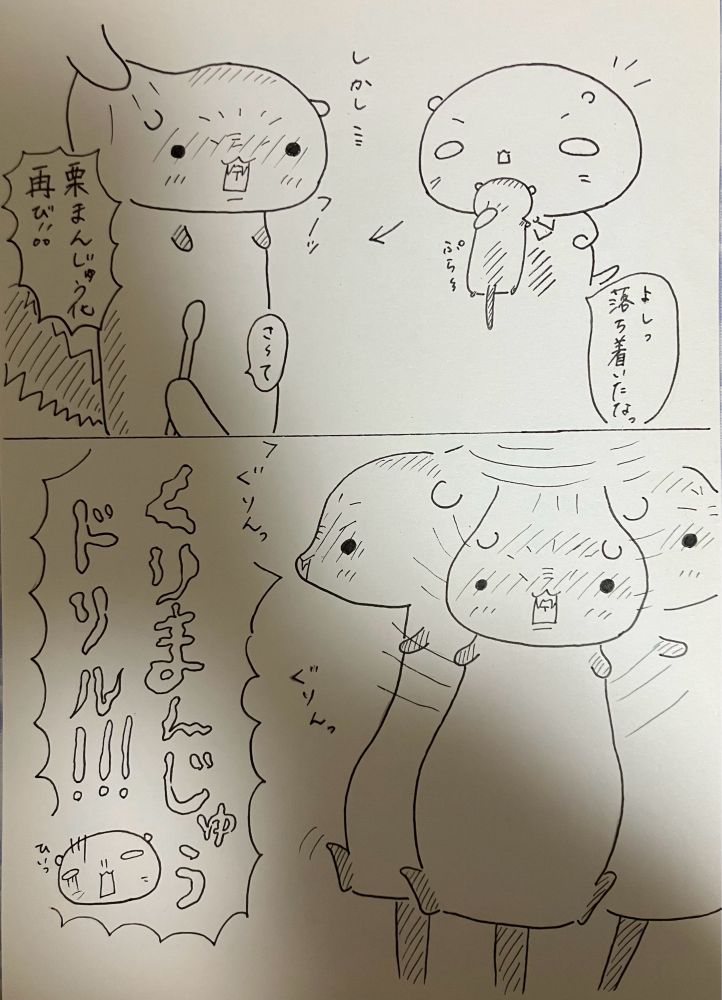 よしっ
落ち着いたなっ
ぷら〜
しかし…
フーッ
栗まんじゅう化
再び!!。。
さ〜て
ぐりんっ
ぐりんっ
くりまんじゅう
ドリル!!!
ひぃっ